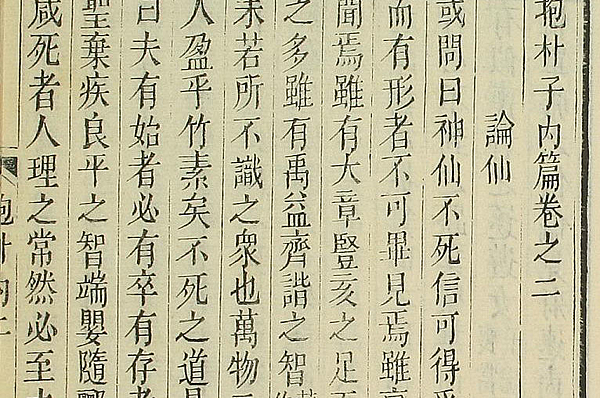 抱朴子内篇卷之二
論仙
或問曰神仙不死信可得乎
而有形者不可畢見焉雖
聞焉雖有大章豎亥之足
之多雖有禹益齊諧之智
未若所不識之衆也萬物
人盈乎竹素矣不死之道
曰夫有始者必有卒有存者
聖棄疾良平之智端嬰隨酈
咸死者人理之常然必至
抱朴内二